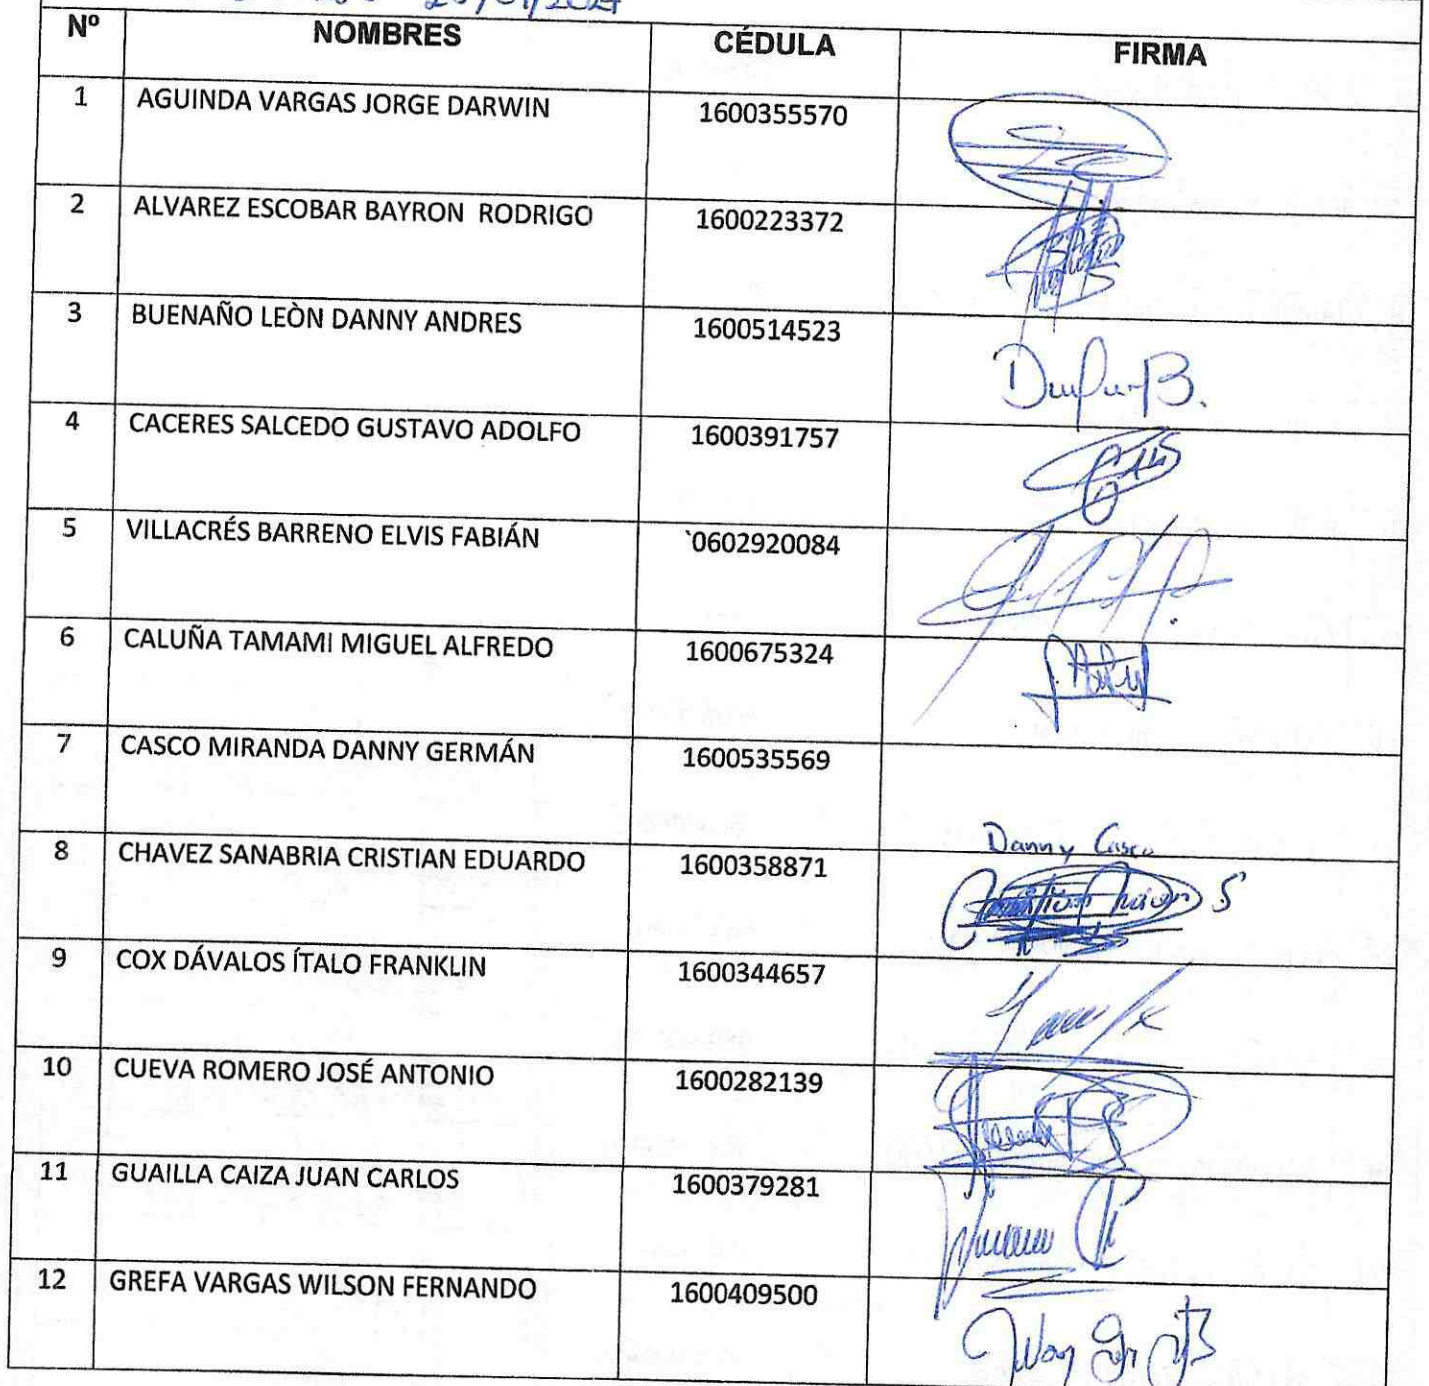 Nº NOMBRES CÉDULA FIRMA
1 AGUINDA VARGAS JORGE DARWIN 1600355570
2 ALVAREZ ESCOBAR BAYRON RODRIGO 1600223372
3 BUENAÑO LEÒN DANNY ANDRES 1600514523
4 CACERES SALCEDO GUSTAVO ADOLFO 1600391757
5 VILLACRÉS BARRENO ELVIS FABIÁN `0602920084
6 CALUÑA TAMAMI MIGUEL ALFREDO 1600675324
7 CASCO MIRANDA DANNY GERMÁN 1600535569
Danny Casco
8 CHAVEZ SANABRIA CRISTIAN EDUARDO 1600358871
9 COX DÁVALOS ÍTALO FRANKLIN 1600344657
10 CUEVA ROMERO JOSÉ ANTONIO 1600282139
11 GUAILLA CAIZA JUAN CARLOS 1600379281
12 GREFA VARGAS WILSON FERNANDO 1600409500